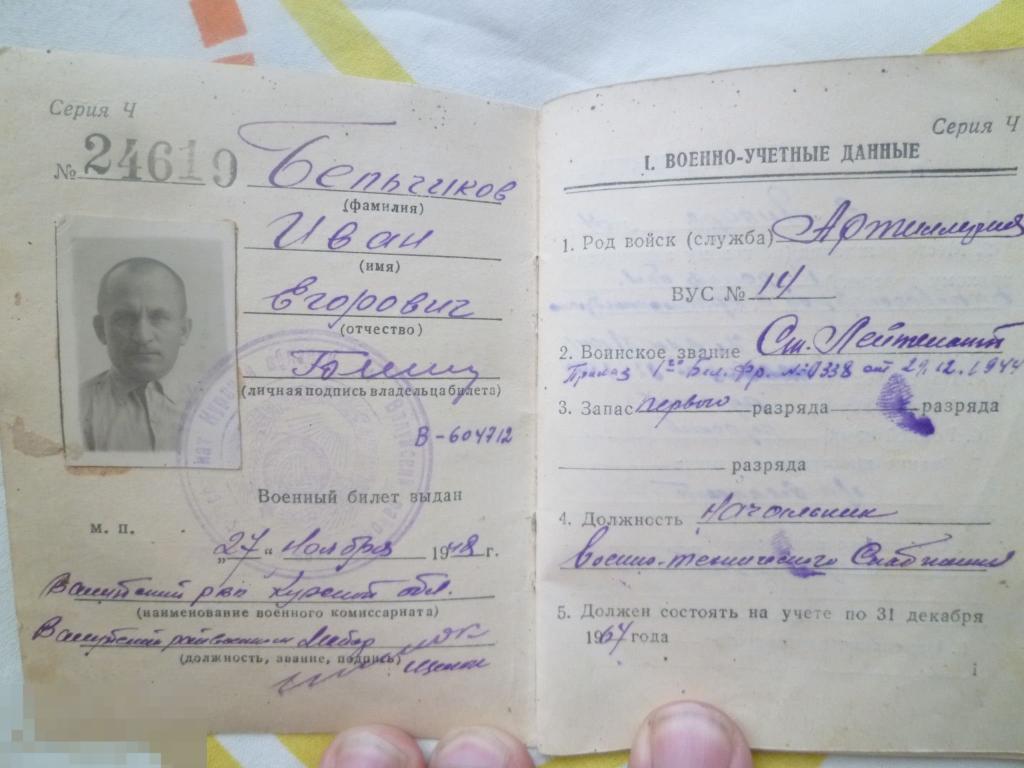 Серия Ч
№ 24619
Бельчиков
(фамилия)
Иван
(имя)
Егорович
(отчество)
(личная подпись владельца билета)
В-604712
Военный билет выдан
м. п.
„27“ Ноября 1948 г.
Валуйский рвк Курской обл.
(наименование военного комиссариата)
Валуйский райвоенком
(должность, звание, подпись)
Серия Ч
I. ВОЕННО-УЧЕТНЫЕ ДАННЫЕ
1. Род войск (служба) Артиллерия
ВУС № 14
2. Воинское звание Ст. Лейтенант
Приказ 1го Бел. Фр. № 0338 от 29.12.1944
3. Запас первого разряда разряда
разряда
4. Должность Начальник
Военно-технического Снабжения
5. Должен состоять на учете по 31 декабря
1967 года
1